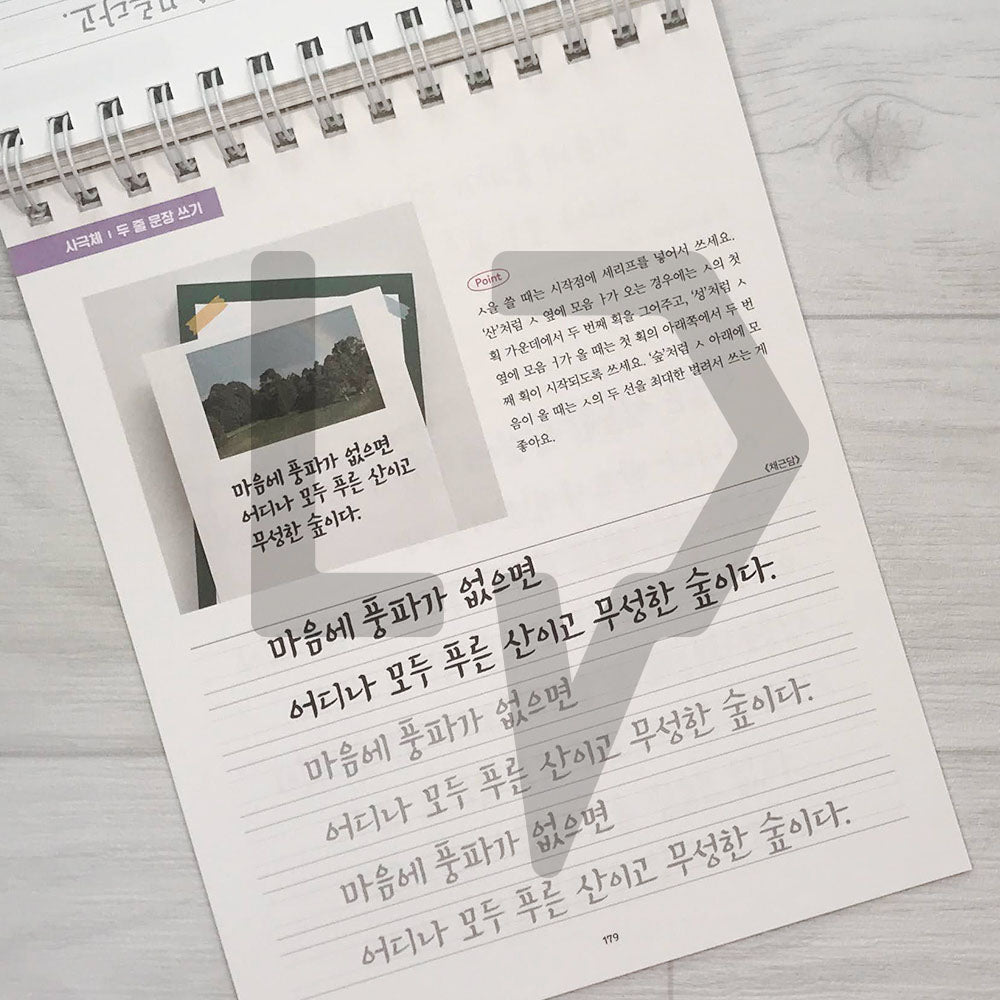 모른다고.
사극체 | 두 줄 문장 쓰기
Point
ㅅ을 쓸 때는 시작점에 세리프를 넣어서 쓰세요.
'산'처럼 ㅅ 옆에 모음 ㅏ가 오는 경우에는 ㅅ의 첫
획 가운데에서 두 번째 획을 그어주고, '성'처럼 ㅅ
옆에 모음 ㅓ가 올 때는 첫 획의 아래쪽에서 두 번
째 획이 시작되도록 쓰세요. '숲'처럼 ㅅ 아래에 모
음이 올 때는 ㅅ의 두 선을 최대한 벌려서 쓰는 게
좋아요.
마음에 풍파가 없으면
어디나 모두 푸른 산이고
무성한 숲이다.
《채근담》
마음에 풍파가 없으면
어디나 모두 푸른 산이고 무성한 숲이다.
마음에 풍파가 없으면
어디나 모두 푸른 산이고 무성한 숲이다.
마음에 풍파가 없으면
어디나 모두 푸른 산이고 무성한 숲이다.
179